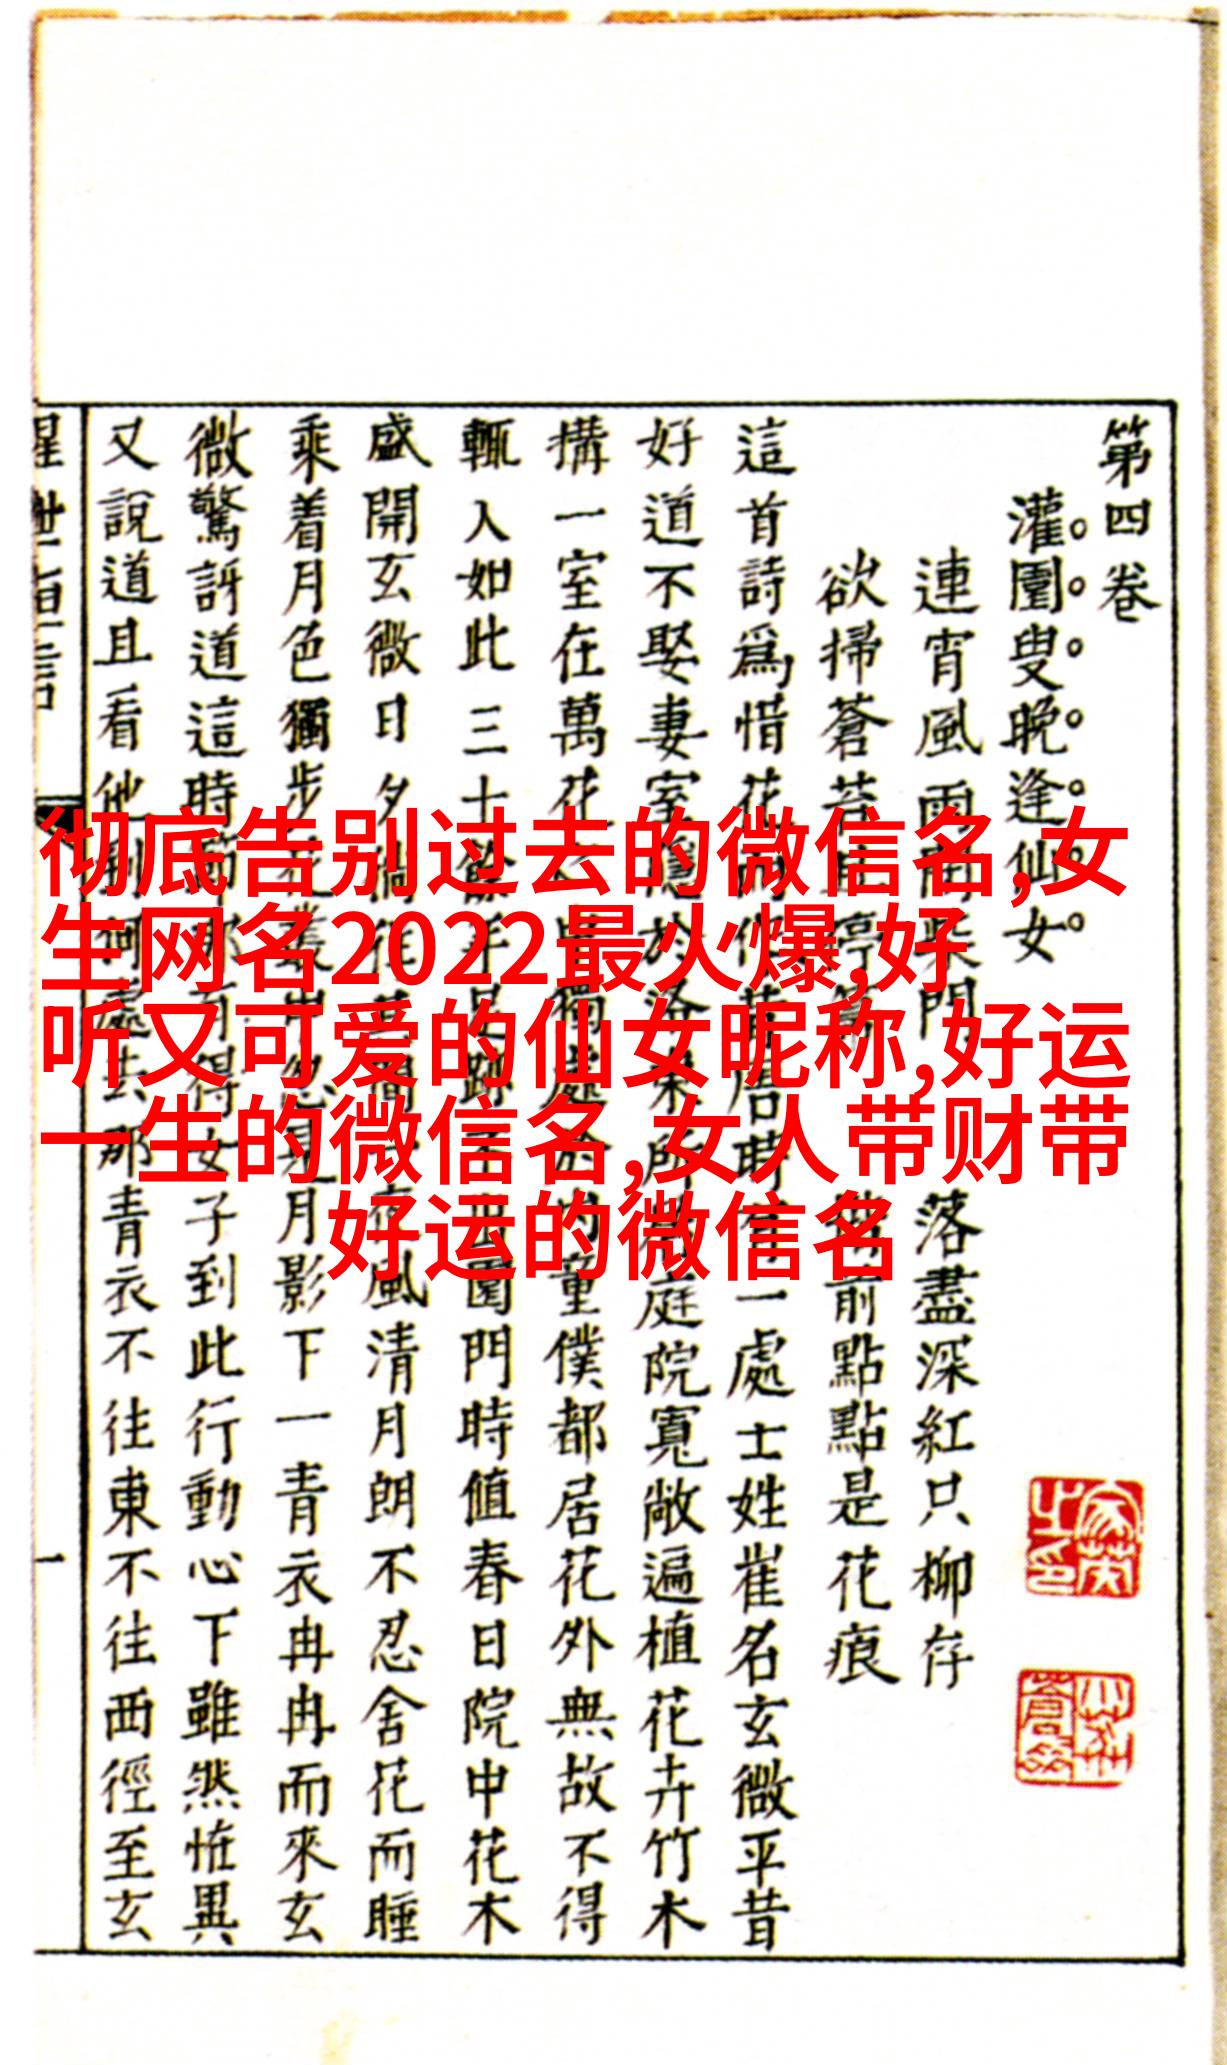 第四卷
灌園叟晚逢仙女
連宵風雨閉柴門 落盡深紅只柳存
欲掃蒼苔且停箒 前點點是花痕
這首詩爲惜花而作昔唐時有一處士姓崔名玄微平昔
好道不娶妻室隱於洛東所庭院寬敞遍植花卉竹木
搆一室在萬花之中獨處於內童僕都居花外無故不得
輒入如此三十餘年足跡不出園門時值春日院中花木
盛開玄微日夕徜徉其間一夜風清月朗不忍舍花而睡
乘着月色獨步花叢中忽見月影下一青衣冉冉而來玄
微驚訝道這時節那有得女子到此行動心下雖然恠異
又說道且看他到何處去那青衣不往東不往西徑至玄
一
彻底告别过去的微信名,女
生网名2022最火爆,好
听又可爱的仙女昵称,好运
一生的微信名,女人带财带
好运的微信名